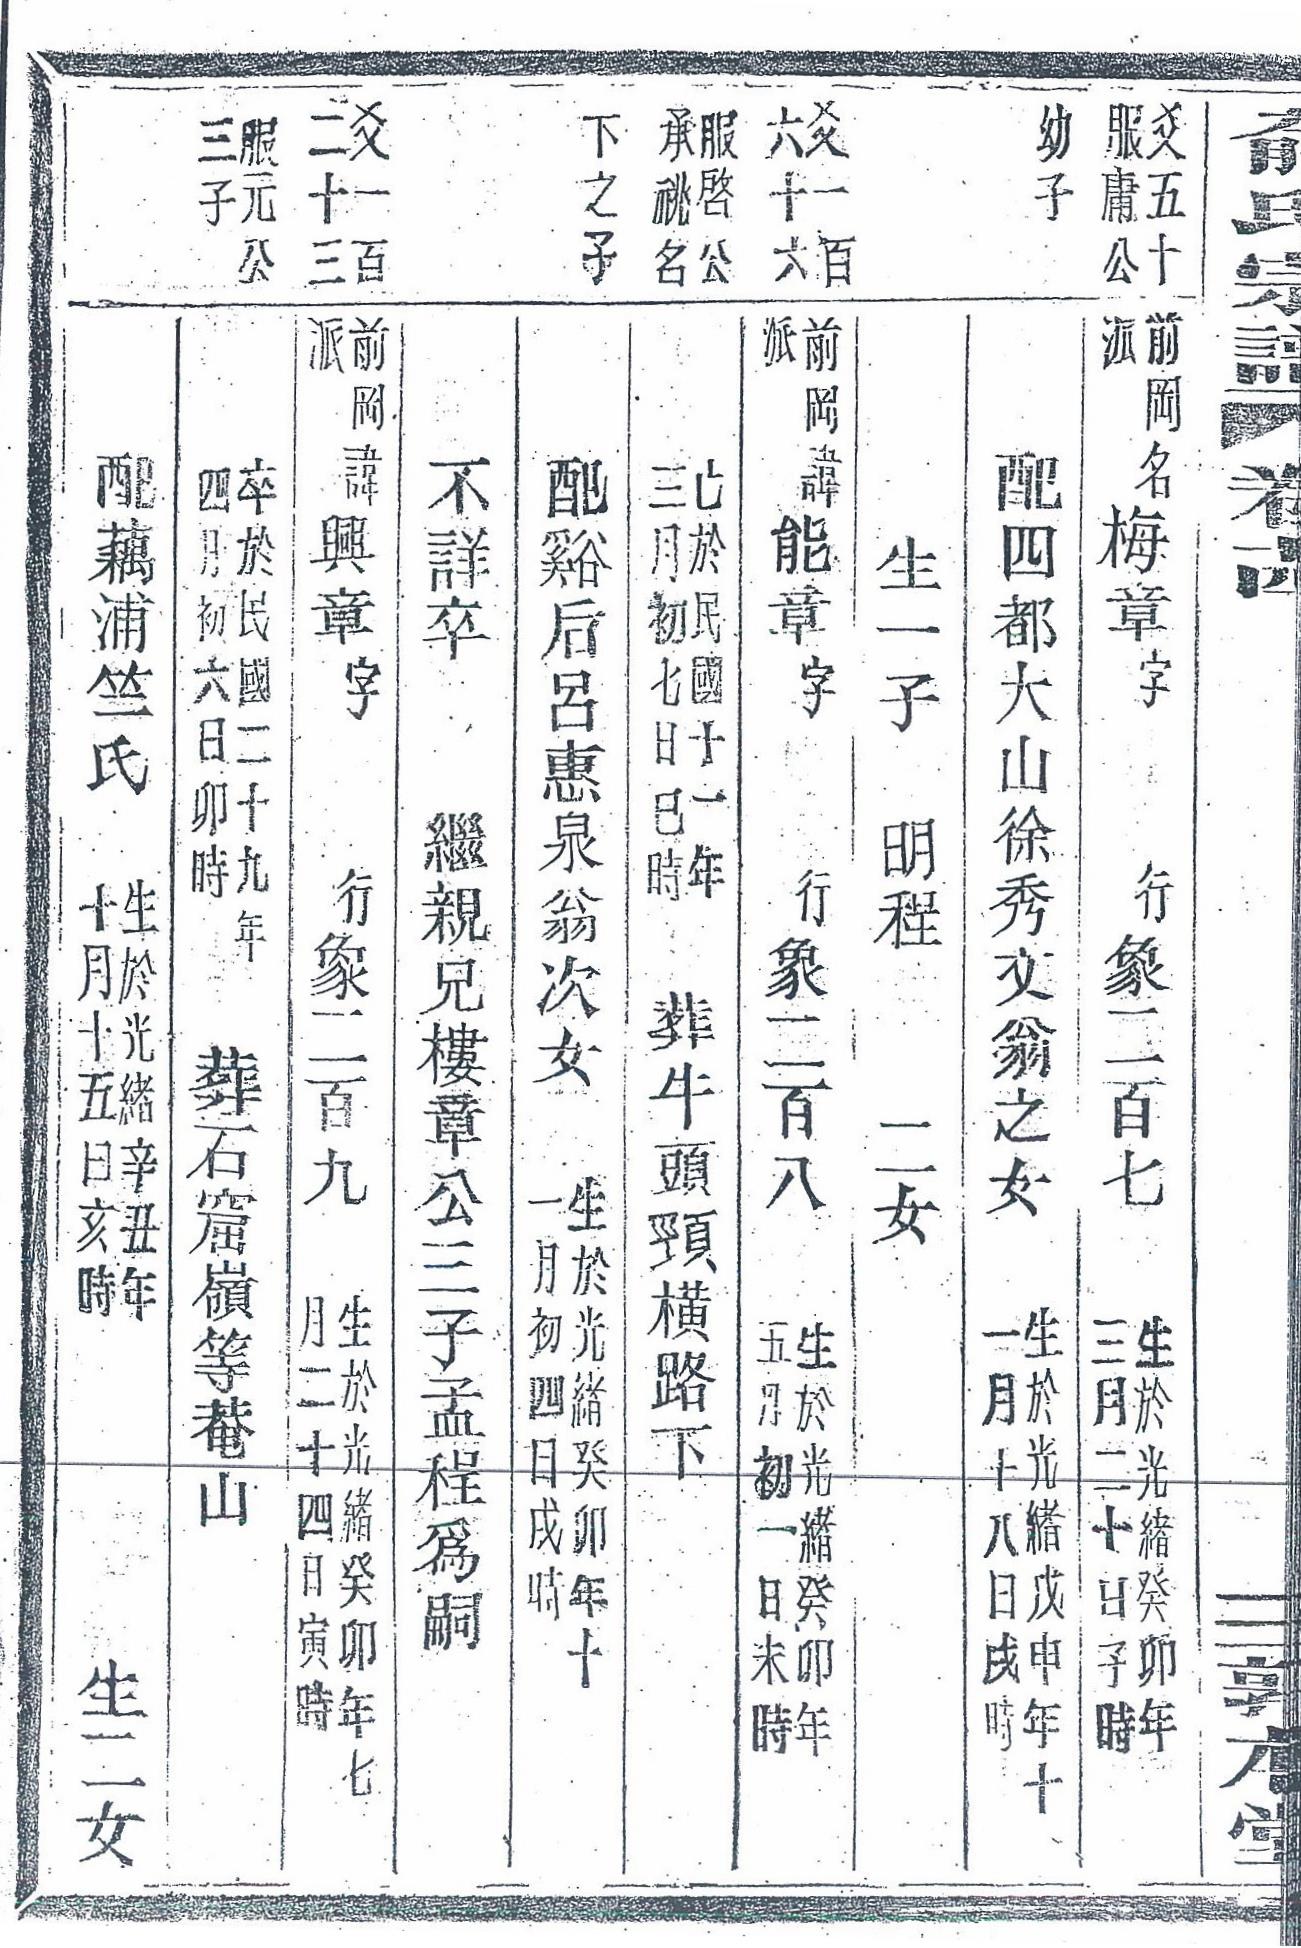 俞氏宗譜 卷六 敦本堂
爻五十
服庸公
幼子
前岡派名梅章字 行象二百七 生於光緒癸卯年三月二十日子時
配四都大山徐秀文翁之女 生於光緒戊申年十一月十八日戌時
生一子 明程 二女
爻一百
六十六
服啓公
承祧名
下之子
前岡派諱能章字 行象二百八 生於光緒癸卯年五月初一日未時
亡於民國十一年三月初七日巳時 葬牛頭頸橫路下
配谿后呂惠泉翁次女 生於光緒癸卯年十一月初四日戌時
不詳卒 繼親兄樓章公三子孟程爲嗣
爻一百
二十三
服元公
三子
前岡派諱興章字 行象二百九 生於光緒癸卯年七月二十四日寅時
卒於民國二十九年四月初六日卯時 葬石窟嶺等菴山
配藕浦竺氏 生於光緒辛丑年十月十五日亥時 生二女